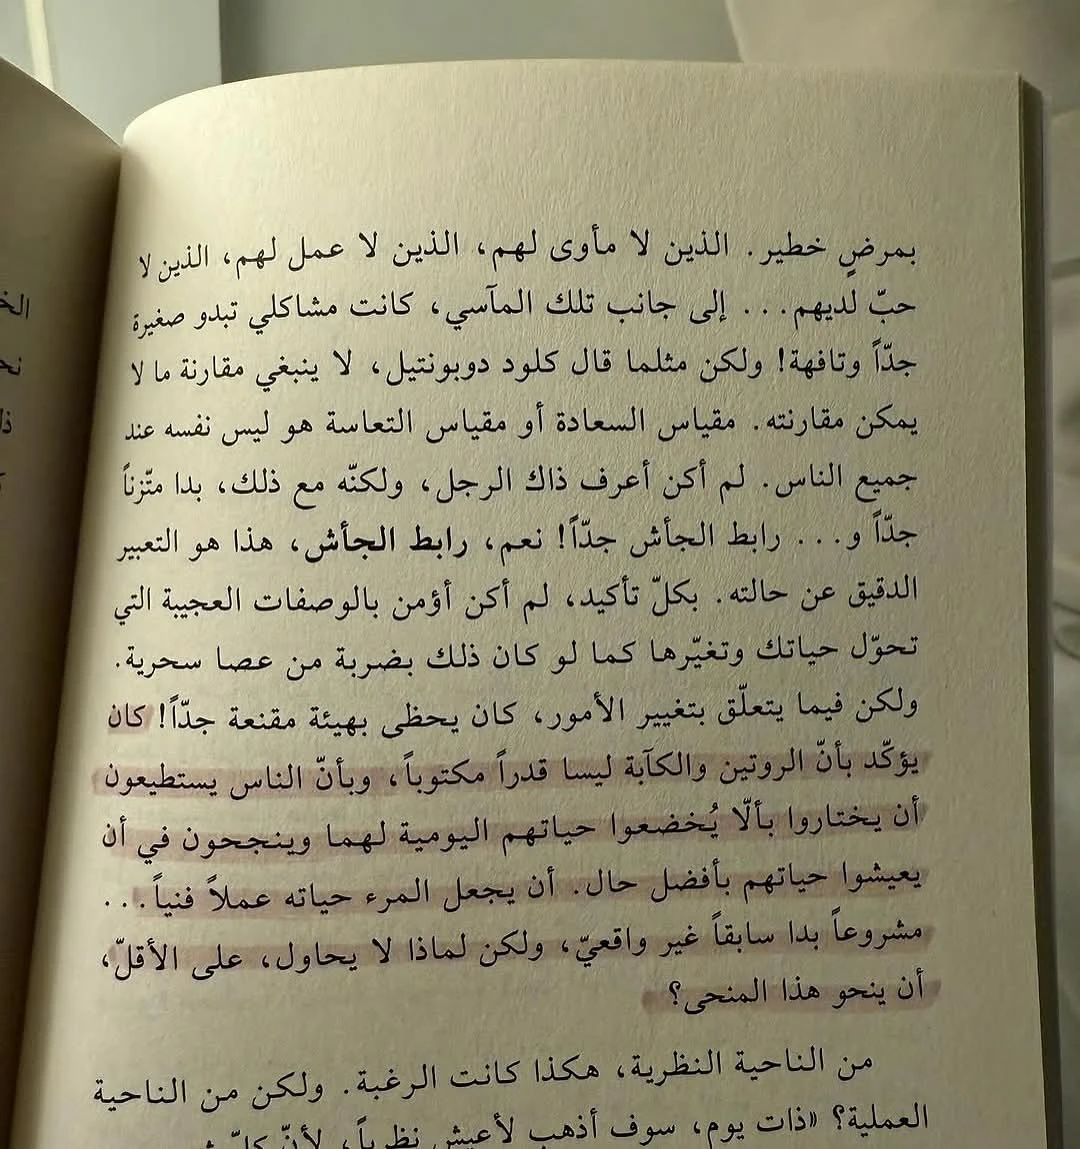 بمرضٍ خطير. الذين لا مأوى لهم، الذين لا عمل لهم، الذين لا
حبّ لديهم... إلى جانب تلك المآسي، كانت مشاكلي تبدو صغيرة
جدّاً وتافهة! ولكن مثلما قال كلود دوبونتيل، لا ينبغي مقارنة ما لا
يمكن مقارنته. مقياس السعادة أو مقياس التعاسة هو ليس نفسه عند
جميع الناس. لم أكن أعرف ذاك الرجل، ولكنّه مع ذلك، بدا متّزناً
جدّاً و... رابط الجأش جدّاً! نعم، رابط الجأش، هذا هو التعبير
الدقيق عن حالته. بكلّ تأكيد، لم أكن أؤمن بالوصفات العجيبة التي
تحوّل حياتك وتغيّرها كما لو كان ذلك بضربة من عصا سحرية.
ولكن فيما يتعلّق بتغيير الأمور، كان يحظى بهيئة مقنعة جدّاً! كان
يؤكّد بأنّ الروتين والكآبة ليسا قدراً مكتوباً، وبأنّ الناس يستطيعون
أن يختاروا بألّا يُخضعوا حياتهم اليومية لهما وينجحون في أن
يعيشوا حياتهم بأفضل حال. أن يجعل المرء حياته عملاً فنياً...
مشروعاً بدا سابقاً غير واقعيّ، ولكن لماذا لا يحاول، على الأقلّ،
أن ينحو هذا المنحى؟
من الناحية النظرية، هكذا كانت الرغبة. ولكن من الناحية
العملية؟ «ذات يوم، سوف أذهب لأعيش نظرياً، لأنّ